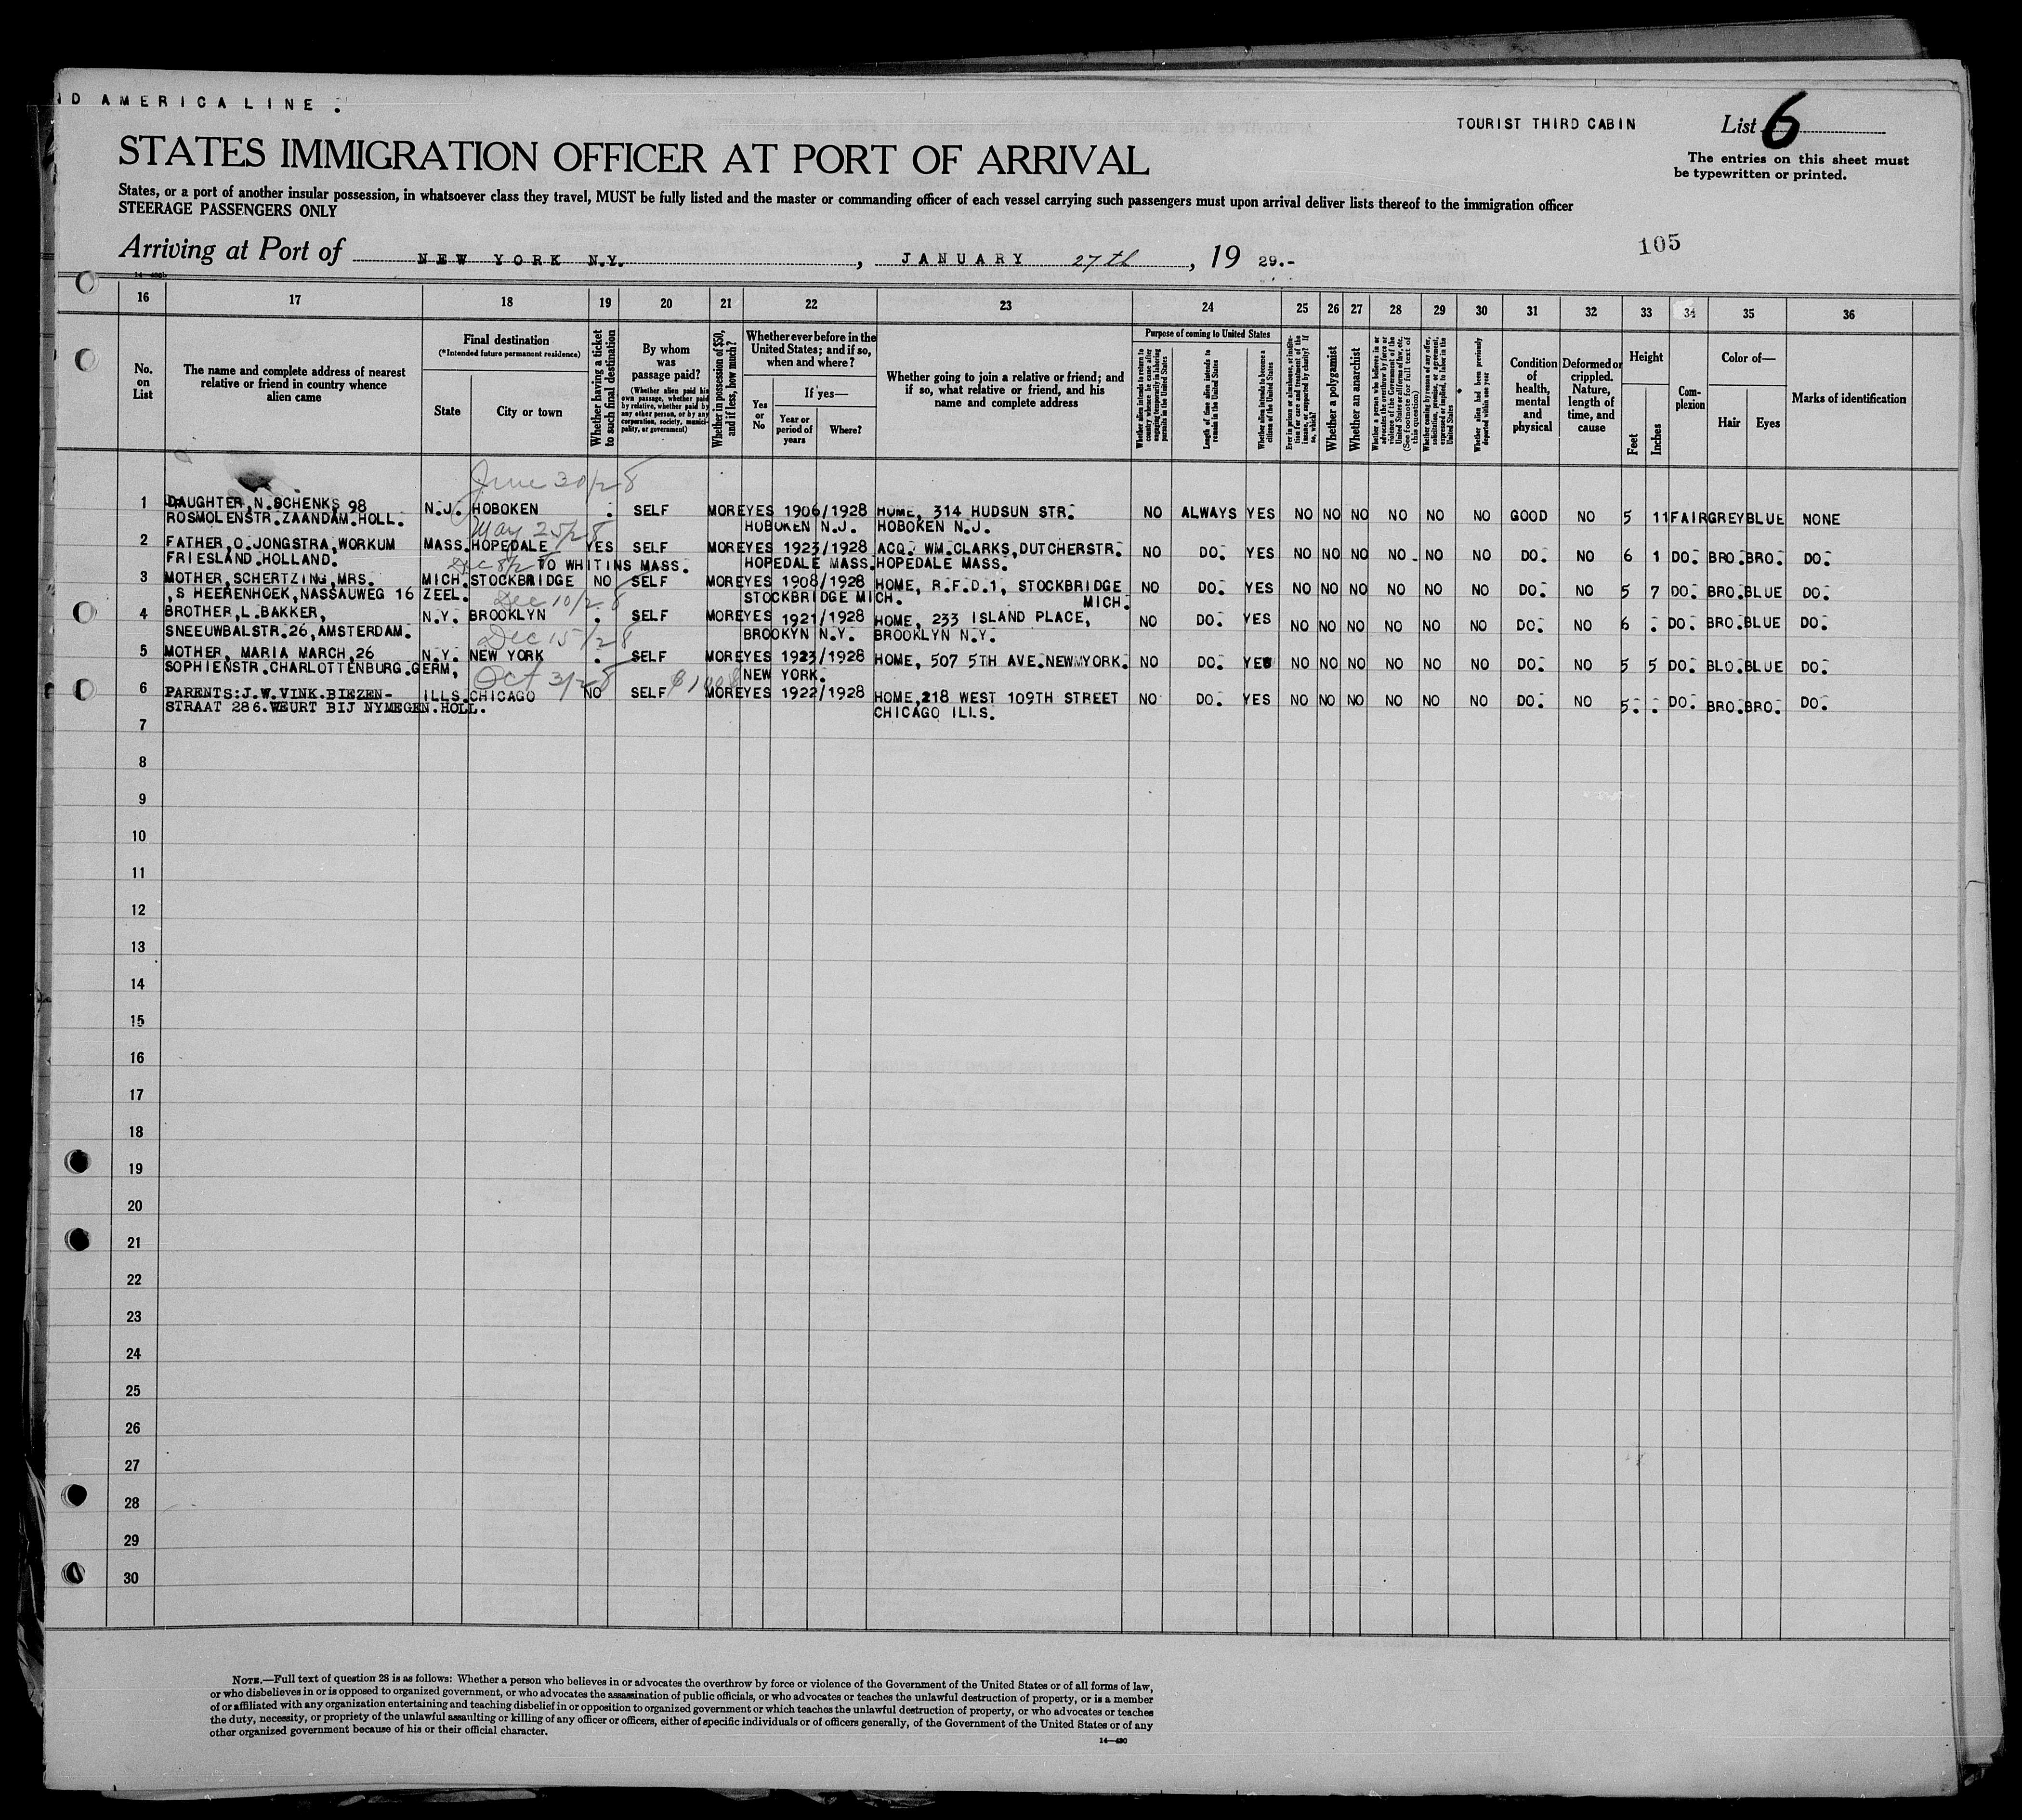 ND AMERICA LINE.
TOURIST THIRD CABIN
List 6
STATES IMMIGRATION OFFICER AT PORT OF ARRIVAL
The entries on this sheet must
be typewritten or printed.
States, or a port of another insular possession, in whatsoever class they travel, MUST be fully listed and the master or commanding officer of each vessel carrying such passengers must upon arrival deliver lists thereof to the immigration officer
STEERAGE PASSENGERS ONLY
105
Arriving at Port of NEW YORK N.Y. , JANUARY 27th , 19 29.-
14-480b
16 17 18 19 20 21 22 23 24 25 26 27 28 29 30 31 32 33 34 35 36
No. on List
The name and complete address of nearest relative or friend in country whence alien came
Final destination
(*Intended future permanent residence)
State
City or town
Whether having a ticket to such final destination
By whom was passage paid?
(Whether alien paid his own passage, whether paid by relative, whether paid by any other person, or by any corporation, society, municipality, or government)
Whether in possession of $50, and if less, how much?
Whether ever before in the United States; and if so, when and where?
Yes or No
If yes—
Year or period of years
Where?
Whether going to join a relative or friend; and if so, what relative or friend, and his name and complete address
Purpose of coming to United States
Whether alien intends to return to country whence he came after engaging temporarily in laboring pursuits in the United States
Length of time alien intends to remain in the United States
Whether alien intends to become a citizen of the United States
Ever in prison or almshouse, or institution for care and treatment of the insane, or supported by charity? If so, which?
Whether a polygamist
Whether an anarchist
Whether a person who believes in or advocates the overthrow by force or violence of the Government of the United States or all forms of law, etc. (See footnote for full text of this question)
Whether coming by reason of any offer, solicitation, promise, or agreement, expressed or implied, to labor in the United States
Whether alien had been previously deported within one year
Condition of health, mental and physical
Deformed or crippled. Nature, length of time, and cause
Height
Feet
Inches
Complexion
Color of—
Hair
Eyes
Marks of identification
June 30/28
1 DAUGHTER, N. SCHENKS 98 N.J. HOBOKEN . SELF MORE YES 1906/1928 HOME, 314 HUDSUN STR. NO ALWAYS YES NO NO NO NO NO NO GOOD NO 5 11 FAIR GREY BLUE NONE
ROSMOLENSTR. ZAANDAM. HOLL. HOBOKEN N.J. HOBOKEN N.J.
May 25/28
2 FATHER, O. JONGSTRA, WORKUM MASS. HOPEDALE YES SELF MORE YES 1923/1928 ACQ. WM. CLARKS, DUTCHERSTR. NO DO. YES NO NO NO NO NO NO DO. NO 6 1 DO. BRO. BRO. DO.
FRIESLAND. HOLLAND. TO WHITINS MASS. HOPEDALE MASS. HOPEDALE MASS.
Dec 8/28
3 MOTHER, SCHERTZING, MRS. MICH. STOCKBRIDGE NO SELF MORE YES 1908/1928 HOME, R.F.D.1, STOCKBRIDGE NO DO. YES NO NO NO NO NO NO DO. NO 5 7 DO. BRO. BLUE DO.
,S HEERENHOEK, NASSAUWEG 16 ZEEL. STOCKBRIDGE MICH. MICH.
Dec 10/28
4 BROTHER, L. BAKKER, N.Y. BROOKLYN . SELF MORE YES 1921/1928 HOME, 233 ISLAND PLACE, NO DO. YES NO NO NO NO NO NO DO. NO 6 . DO. BRO. BLUE DO.
SNEEUWBALSTR. 26, AMSTERDAM. BROOKYN N.Y. BROOKLYN N.Y.
Dec 15/28
5 MOTHER, MARIA MARCH, 26 N.Y. NEW YORK . SELF MORE YES 1923/1928 HOME, 507 5TH AVE. NEW YORK. NO DO. YES NO NO NO NO NO NO DO. NO 5 5 DO. BLO. BLUE DO.
SOPHIENSTR. CHARLOTTENBURG. GERM, NEW YORK.
Oct 3/28
6 PARENTS: J.W. VINK. BIEZEN- ILLS. CHICAGO NO SELF MORE YES 1922/1928 HOME, 218 WEST 109TH STREET NO DO. YES NO NO NO NO NO NO DO. NO 5. . DO. BRO. BRO. DO.
STRAAT 286. WEURT BIJ NYMEGEN. HOLL. CHICAGO ILLS.
7
8
9
10
11
12
13
14
15
16
17
18
19
20
21
22
23
24
25
26
27
28
29
30
NOTE.—Full text of question 28 is as follows: Whether a person who believes in or advocates the overthrow by force or violence of the Government of the United States or of all forms of law,
or who disbelieves in or is opposed to organized government, or who advocates the assassination of public officials, or who advocates or teaches the unlawful destruction of property, or is a member
of or affiliated with any organization entertaining and teaching disbelief in or opposition to organized government or which teaches the unlawful destruction of property, or who advocates or teaches
the duty, necessity, or propriety of the unlawful assaulting or killing of any officer or officers, either of specific individuals or of officers generally, of the Government of the United States or of any
other organized government because of his or their official character.
14—480